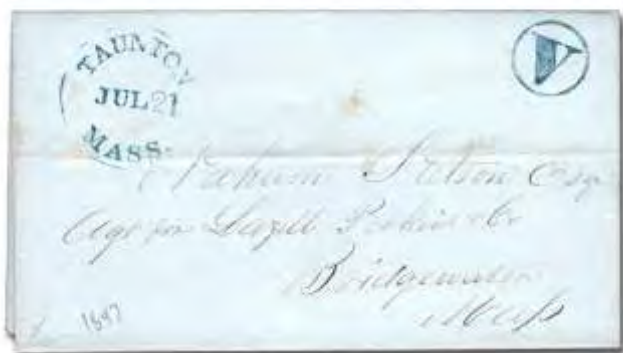 TAUNTON
JUL 21
MASS.
Nahum Stetson Esq
Agt for Lazell Perkins & Co
Bridgewater
Mass
1847